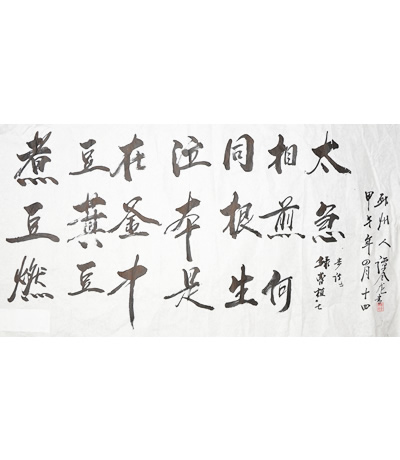 煮豆燃
豆萁豆
在釜中
泣本是
同根生
相煎何
太急
錄曹植七
步诗
甲午年四月十四
州人
书